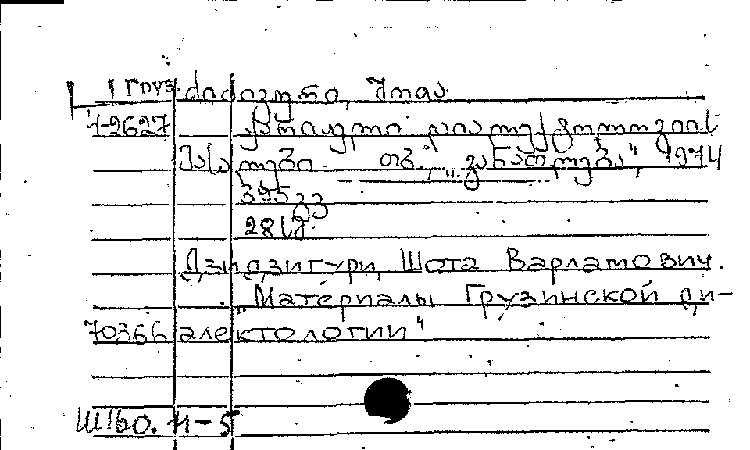 Груз. ძიძიგური, შოთა
1-2627 ქართული დიალექტოლოგიის
მასალები. თბ., „განათლება", 1974
395 გვ
28 სმ.
Дзидзигури, Шота Варламович.
„Материалы Грузинской ди-
70366 алектологии"